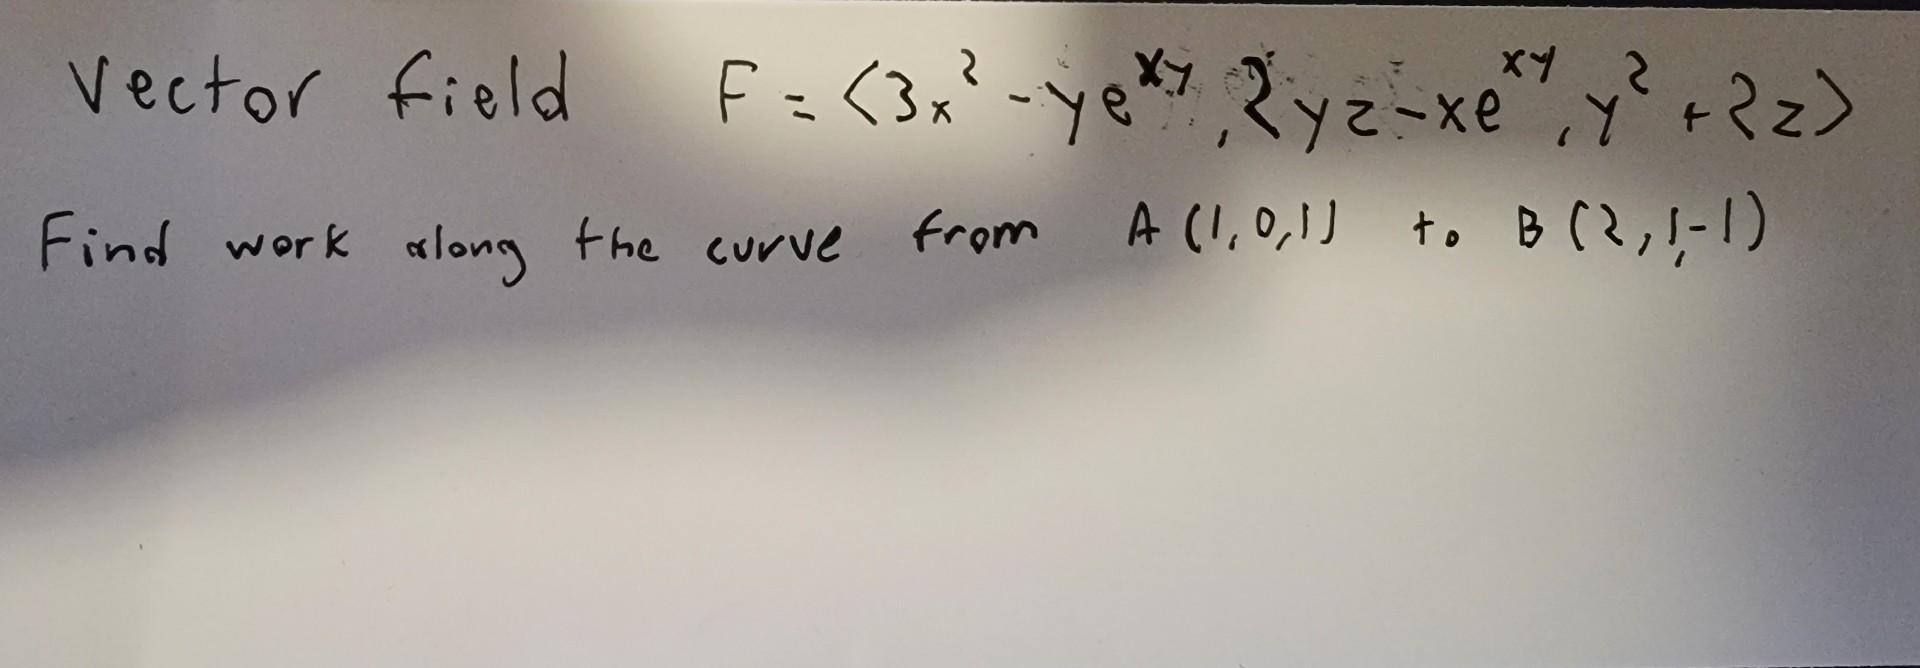 Vector field F = <3x² - ye^xy, 2yz - xe^xy, y² + 2z>
Find work along the curve from A (1,0,1) to B (2,1,-1)